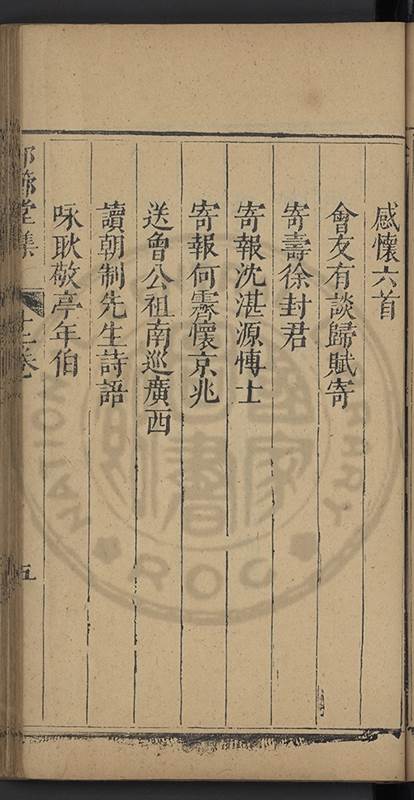 感懷六首
會友有談歸賦寄
寄壽徐封君
寄報沈湛源博士
寄報何霽懷京兆
送曾公祖南巡廣西
讀朝制先生詩語
咏耿敬亭年伯
堂集 卷 五